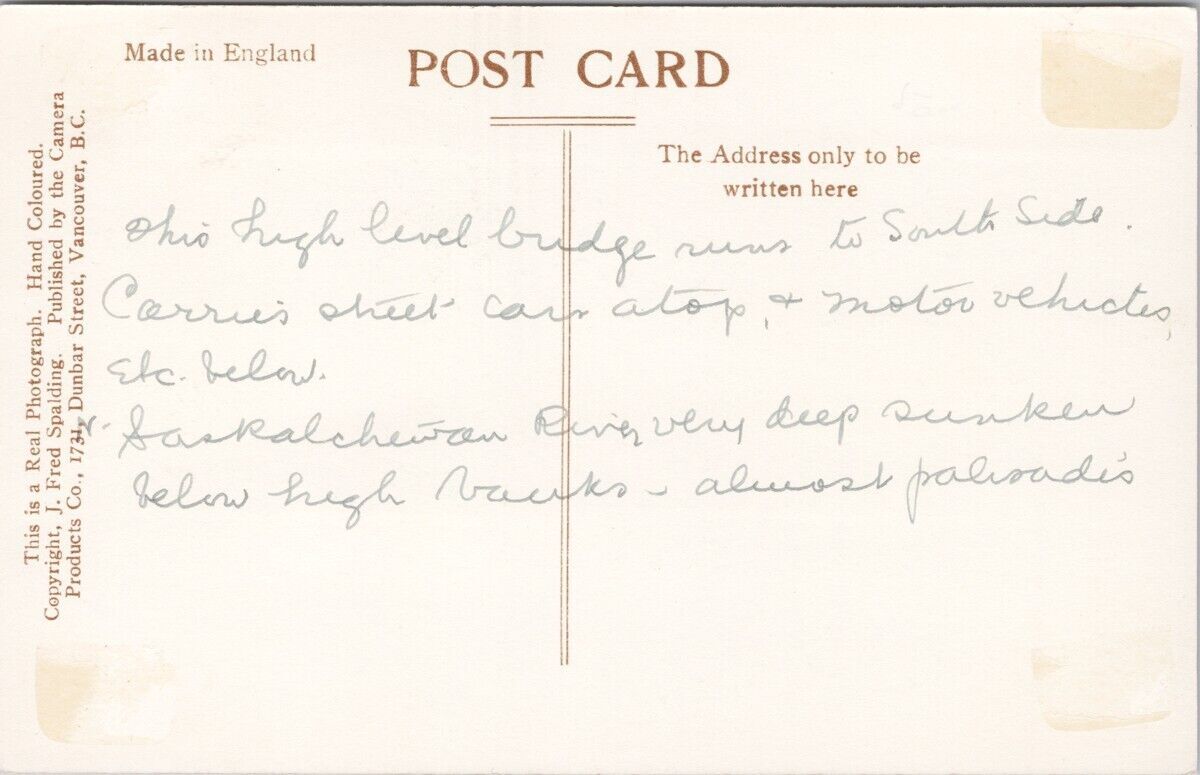 Made in England
POST CARD
The Address only to be
written here
This is a Real Photograph. Hand Coloured.
Copyright, J. Fred Spalding. Published by the Camera
Products Co., 1731, Dunbar Street, Vancouver, B.C.
This high level bridge runs to South Side.
Carries street cars atop, & motor vehicles,
etc. below.
N. Saskatchewan River very deep sunken
below high banks - almost palisades